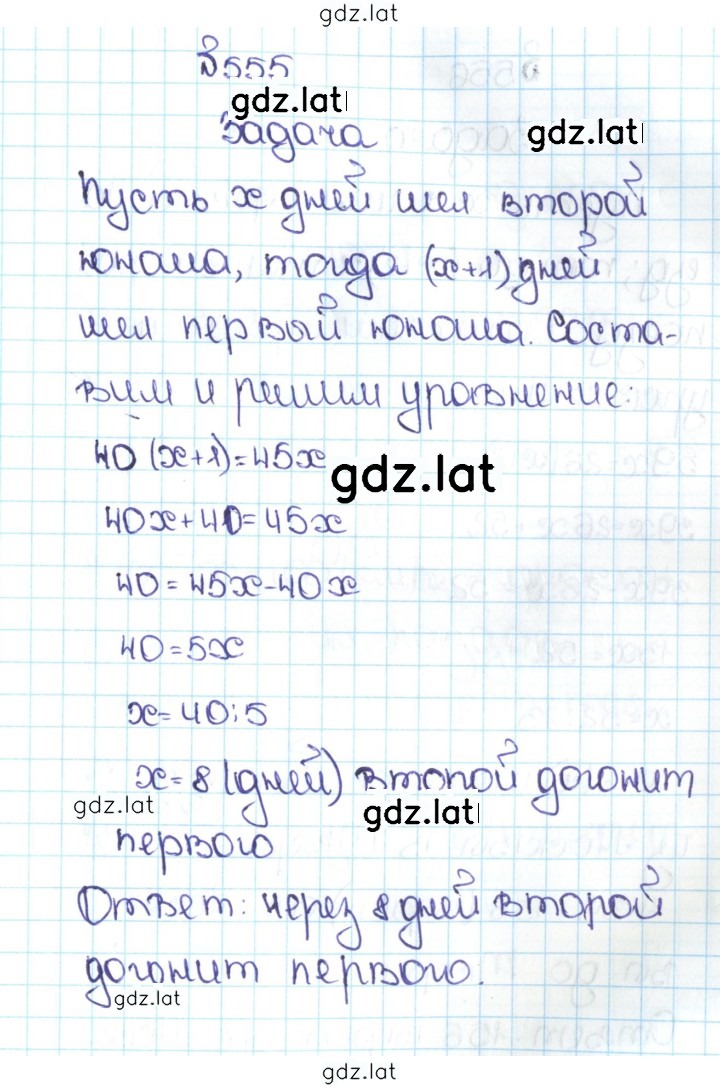 gdz.lat
№555
gdz.lat
Задача
gdz.lat
Пусть x дней шел второй
юноша, тогда (x+1) дней
шел первый юноша. Соста-
вим и решим уравнение:
40 (x+1)=45x
gdz.lat
40x+40=45x
40=45x-40x
40=5x
x=40:5
x=8 (дней) второй догонит
gdz.lat
gdz.lat
первого
Ответ: через 8 дней второй
догонит первого.
gdz.lat
gdz.lat